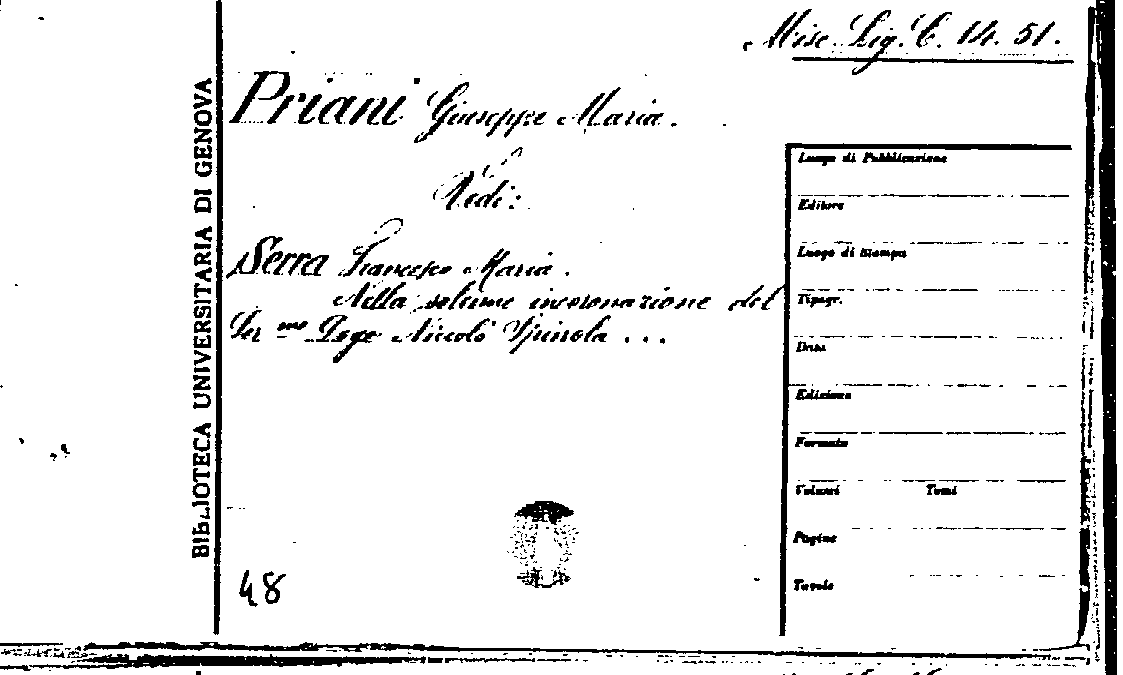 Misc. Lig. C. 14. 51.
Priani Giuseppe Maria.
Vedi:
Serra Francesco Maria.
Nella solenne incoronazione del
Ser.mo Doge Niccolò Spinola ...
BIBLIOTECA UNIVERSITARIA DI GENOVA
Luogo di Pubblicazione
Editore
Luogo di Stampa
Tipogr.
Data
Edizione
Formato
Volumi Tomi
Pagine
Tavole
48